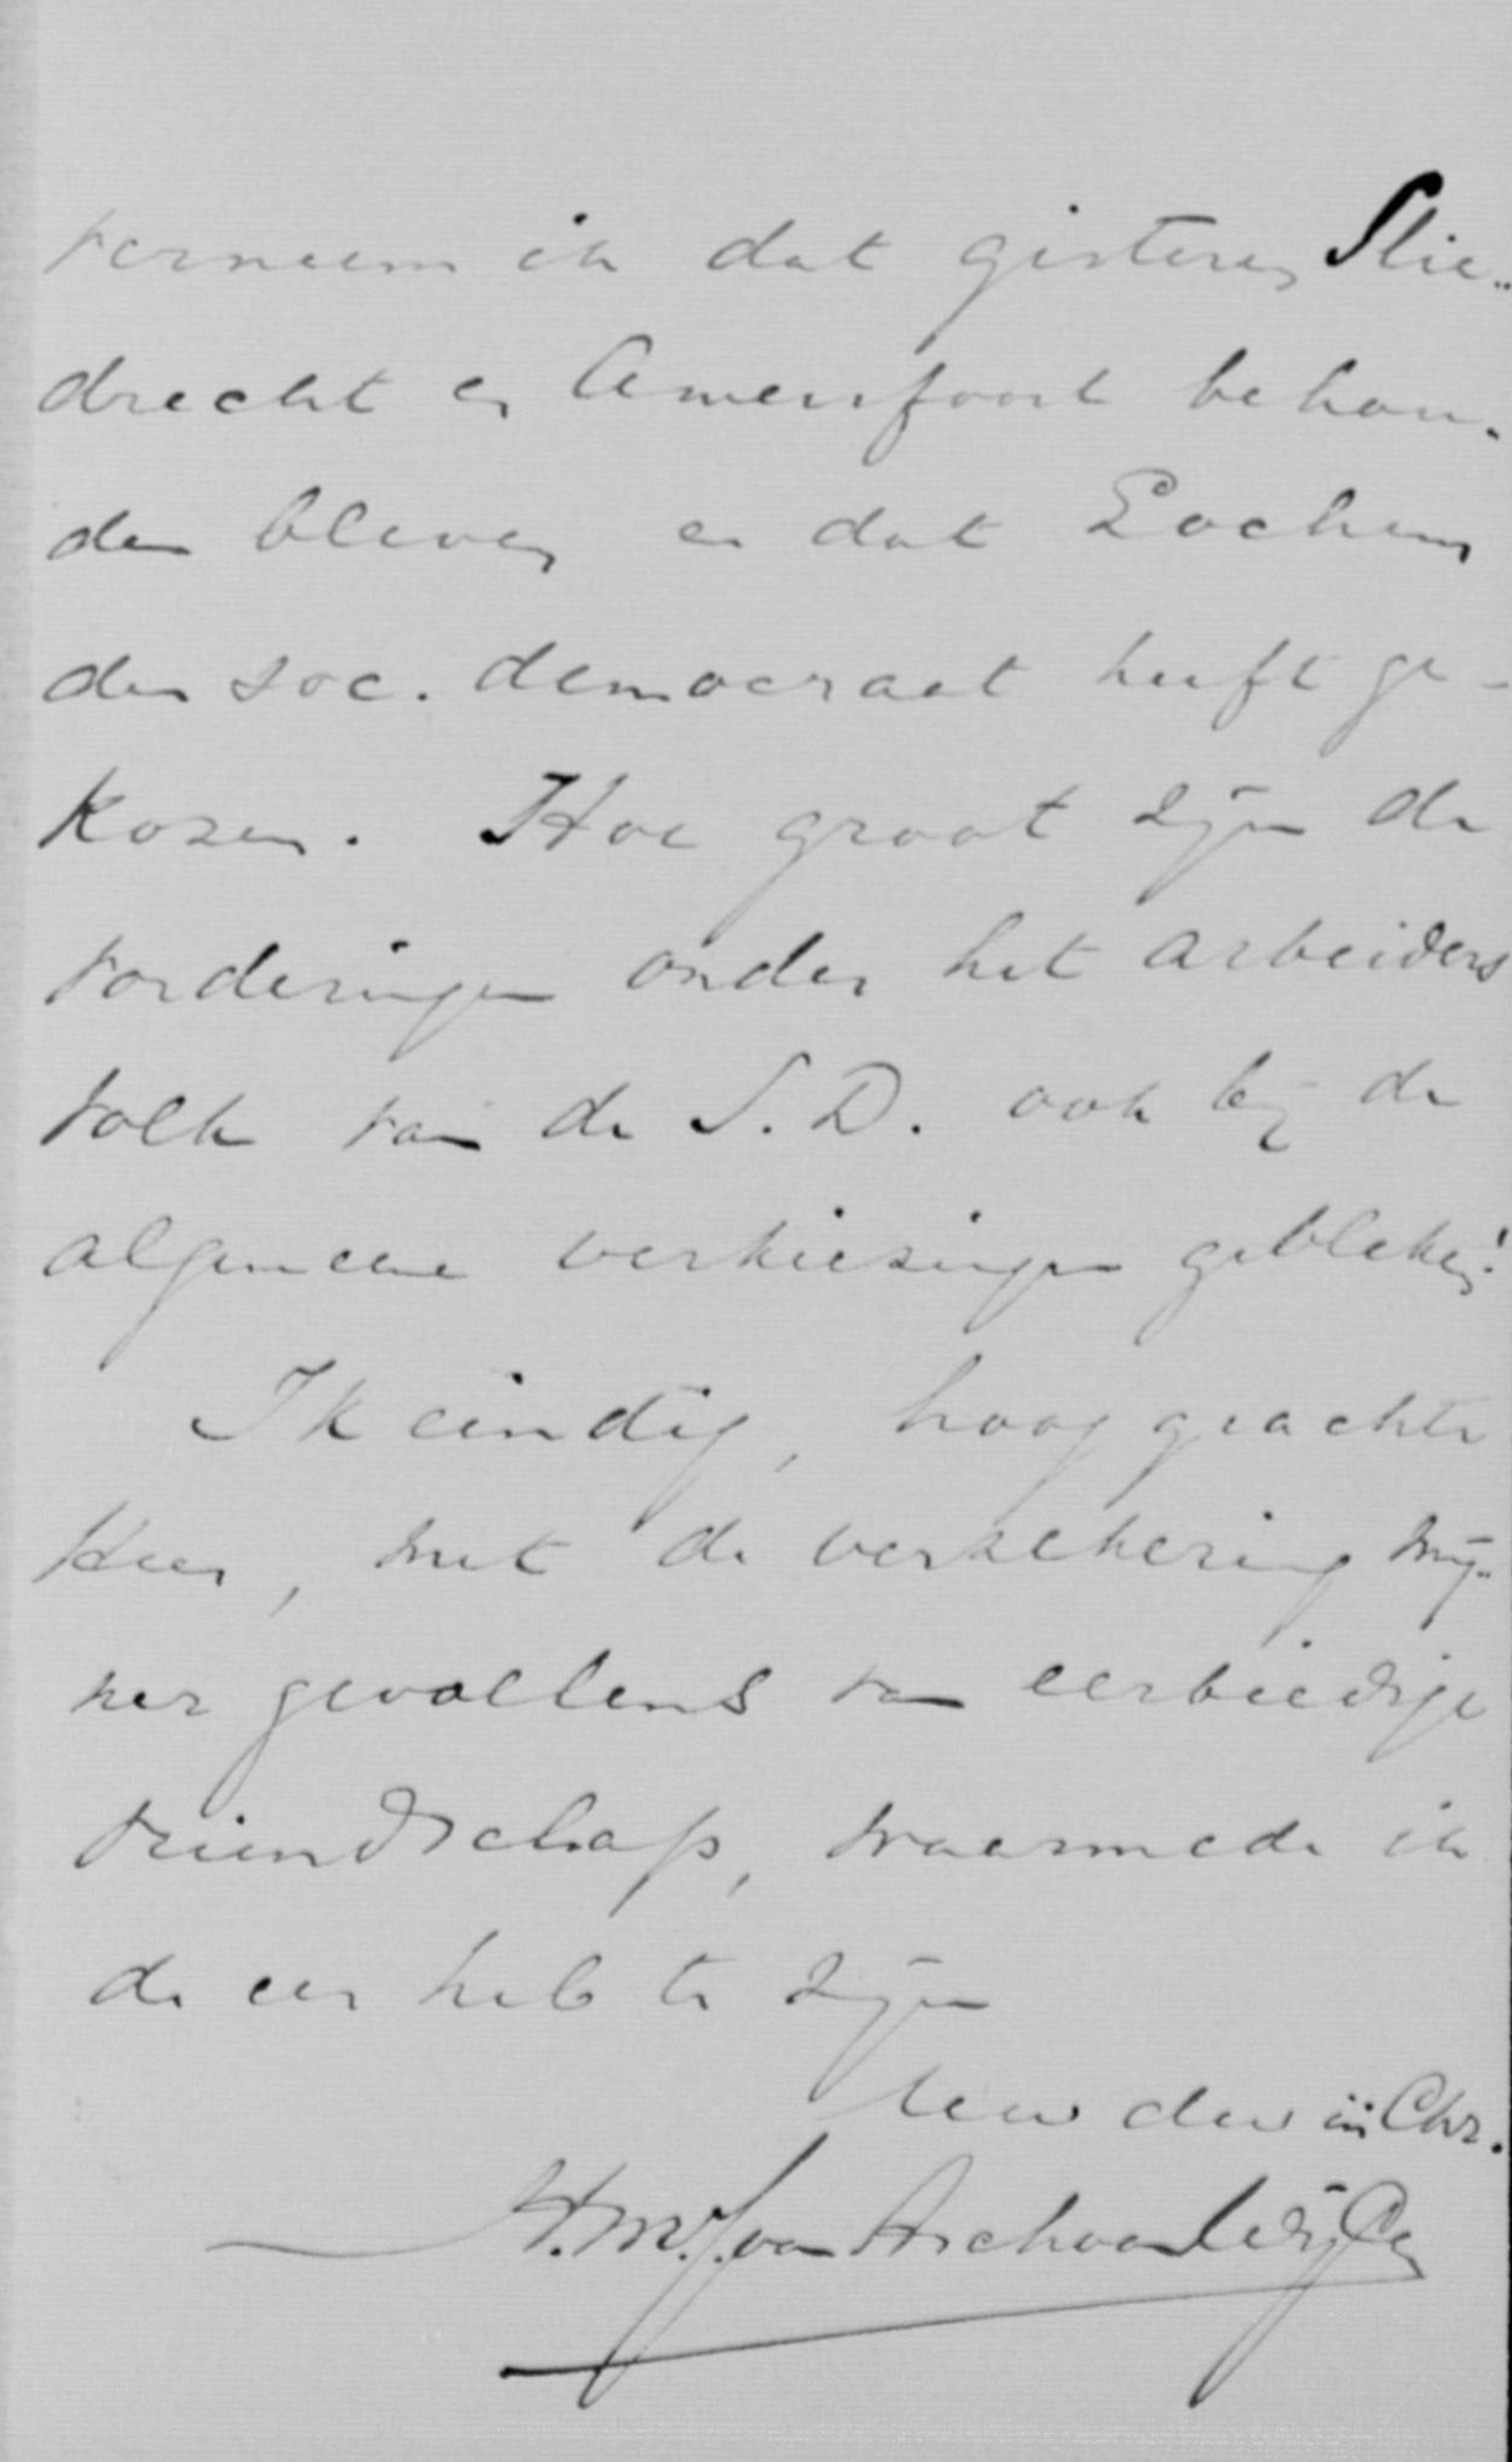 verneem ik dat gisteren Slie-
drecht en Amersfoort behou-
den bleven en dat Lochem
den soc. democraat heeft ge-
kozen. Hoe groot zijn de
vorderingen onder het arbeiders
volk van de S.D. ook bij de
algemeene verkiezingen gebleken!
Ik eindig, hooggeachte
Heer, met de verzekering mij-
ner gevoelens van eerbiedige
vriendschap, waarmede ik
de eer heb te zijn
Uew dw in Chr.
H.M.J. van Asch van Wijck